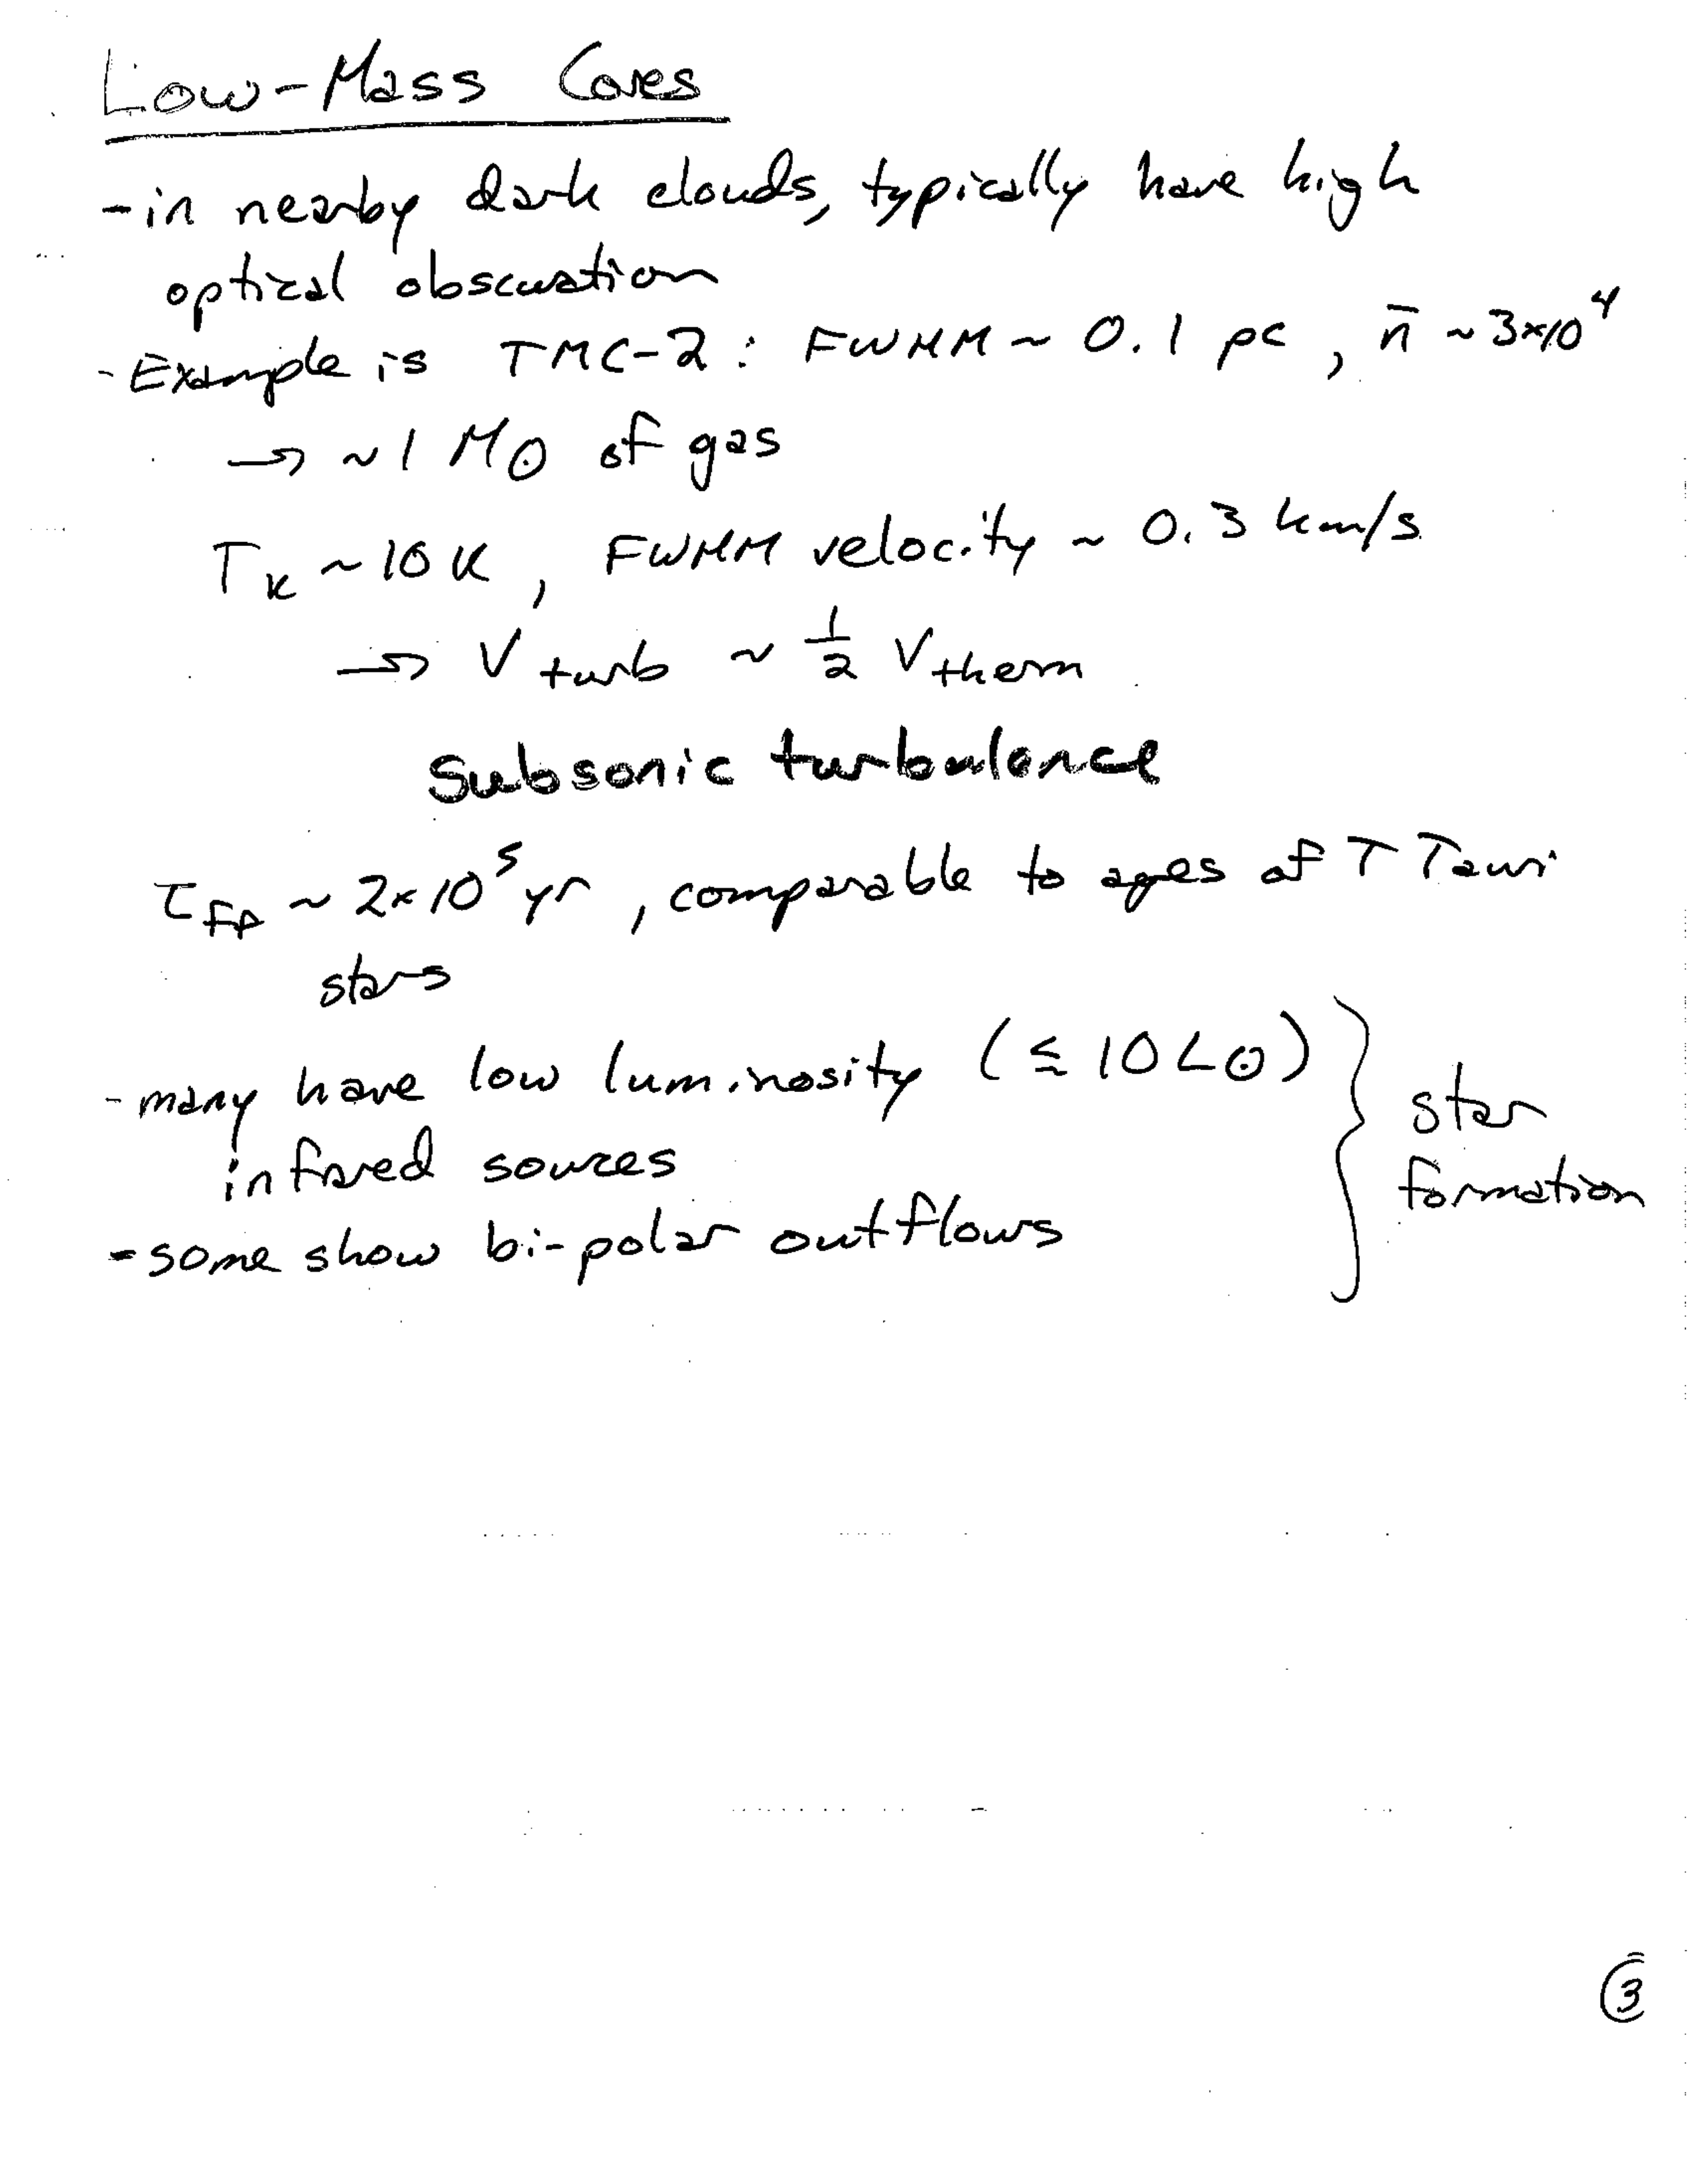 Low-Mass Cores
- in nearby dark clouds, typically have high
optical obscuration
- Example is TMC-2 : FWHM ~ 0.1 pc , n̄ ~ 3×10⁴
→ ~ 1 M⊙ of gas
T_K ~ 10 K , FWHM velocity ~ 0.3 km/s
→ V_turb ~ 1/2 V_therm
Subsonic turbulence
τ_ff ~ 2×10⁵ yr , comparable to ages of T Tauri
stars
- many have low luminosity (≤ 10 L⊙)
infrared sources
- some show bi-polar outflows
} star
formation
3